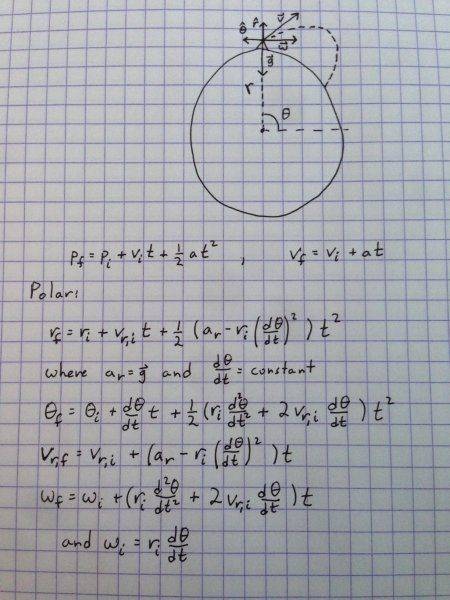 θ̂ r̂ v⃗
ω⃗
g⃗
r
θ
p_f = p_i + v_i t + 1/2 at² , v_f = v_i + at
Polar:
r_f = r_i + v_{r,i} t + 1/2 (a_r - r_i (dθ/dt)²) t²
where a_r = g⃗ and dθ/dt = constant
θ_f = θ_i + dθ/dt t + 1/2 (r_i d²θ/dt² + 2 v_{r,i} dθ/dt) t²
v_{r,f} = v_{r,i} + (a_r - r_i (dθ/dt)²) t
ω_f = ω_i + (r_i d²θ/dt² + 2 v_{r,i} dθ/dt) t
and ω_i = r_i dθ/dt